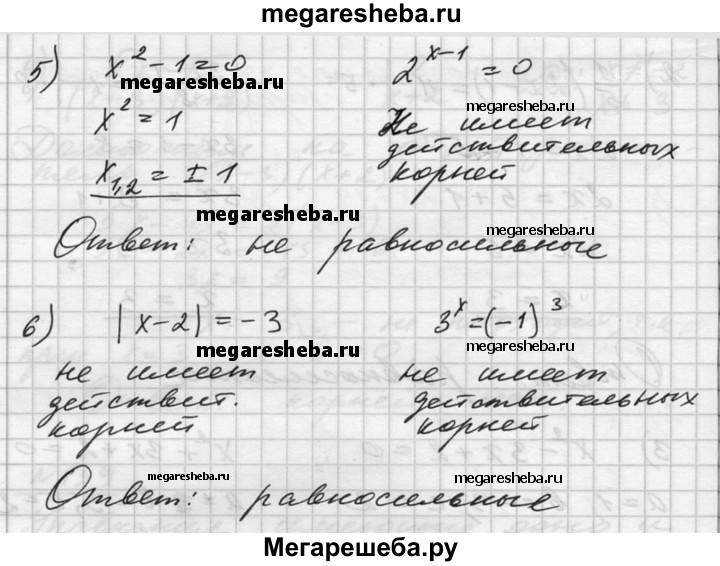 megaresheba.ru
5) x² - 1 = 0 2^(x-1) = 0
megaresheba.ru
megaresheba.ru
x² = 1 Не имеет
действительных
x₁,₂ = ± 1 корней
megaresheba.ru
Ответ: не равносильные
6) |x-2| = -3 3^x = (-1)^3
megaresheba.ru
не имеет не имеет
действит. действительных
корней корней
megaresheba.ru
megaresheba.ru
Ответ: равносильные
megaresheba.ru
Мегарешеба.ру